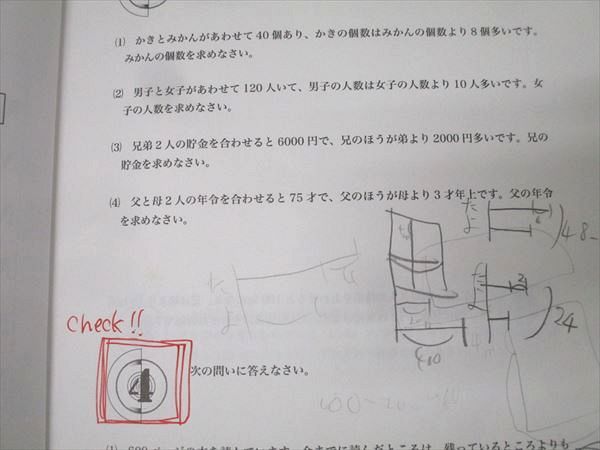 (1) かきとみかんがあわせて40個あり、かきの個数はみかんの個数より8個多いです。
みかんの個数を求めなさい。
(2) 男子と女子があわせて120人いて、男子の人数は女子の人数より10人多いです。女
子の人数を求めなさい。
(3) 兄弟2人の貯金を合わせると6000円で、兄のほうが弟より2000円多いです。兄の
貯金を求めなさい。
(4) 父と母2人の年令を合わせると75才で、父のほうが母より3才年上です。父の年令
を求めなさい。
た
よ
6
48
た
よ
2
24
check!!
4
次の問いに答えなさい。